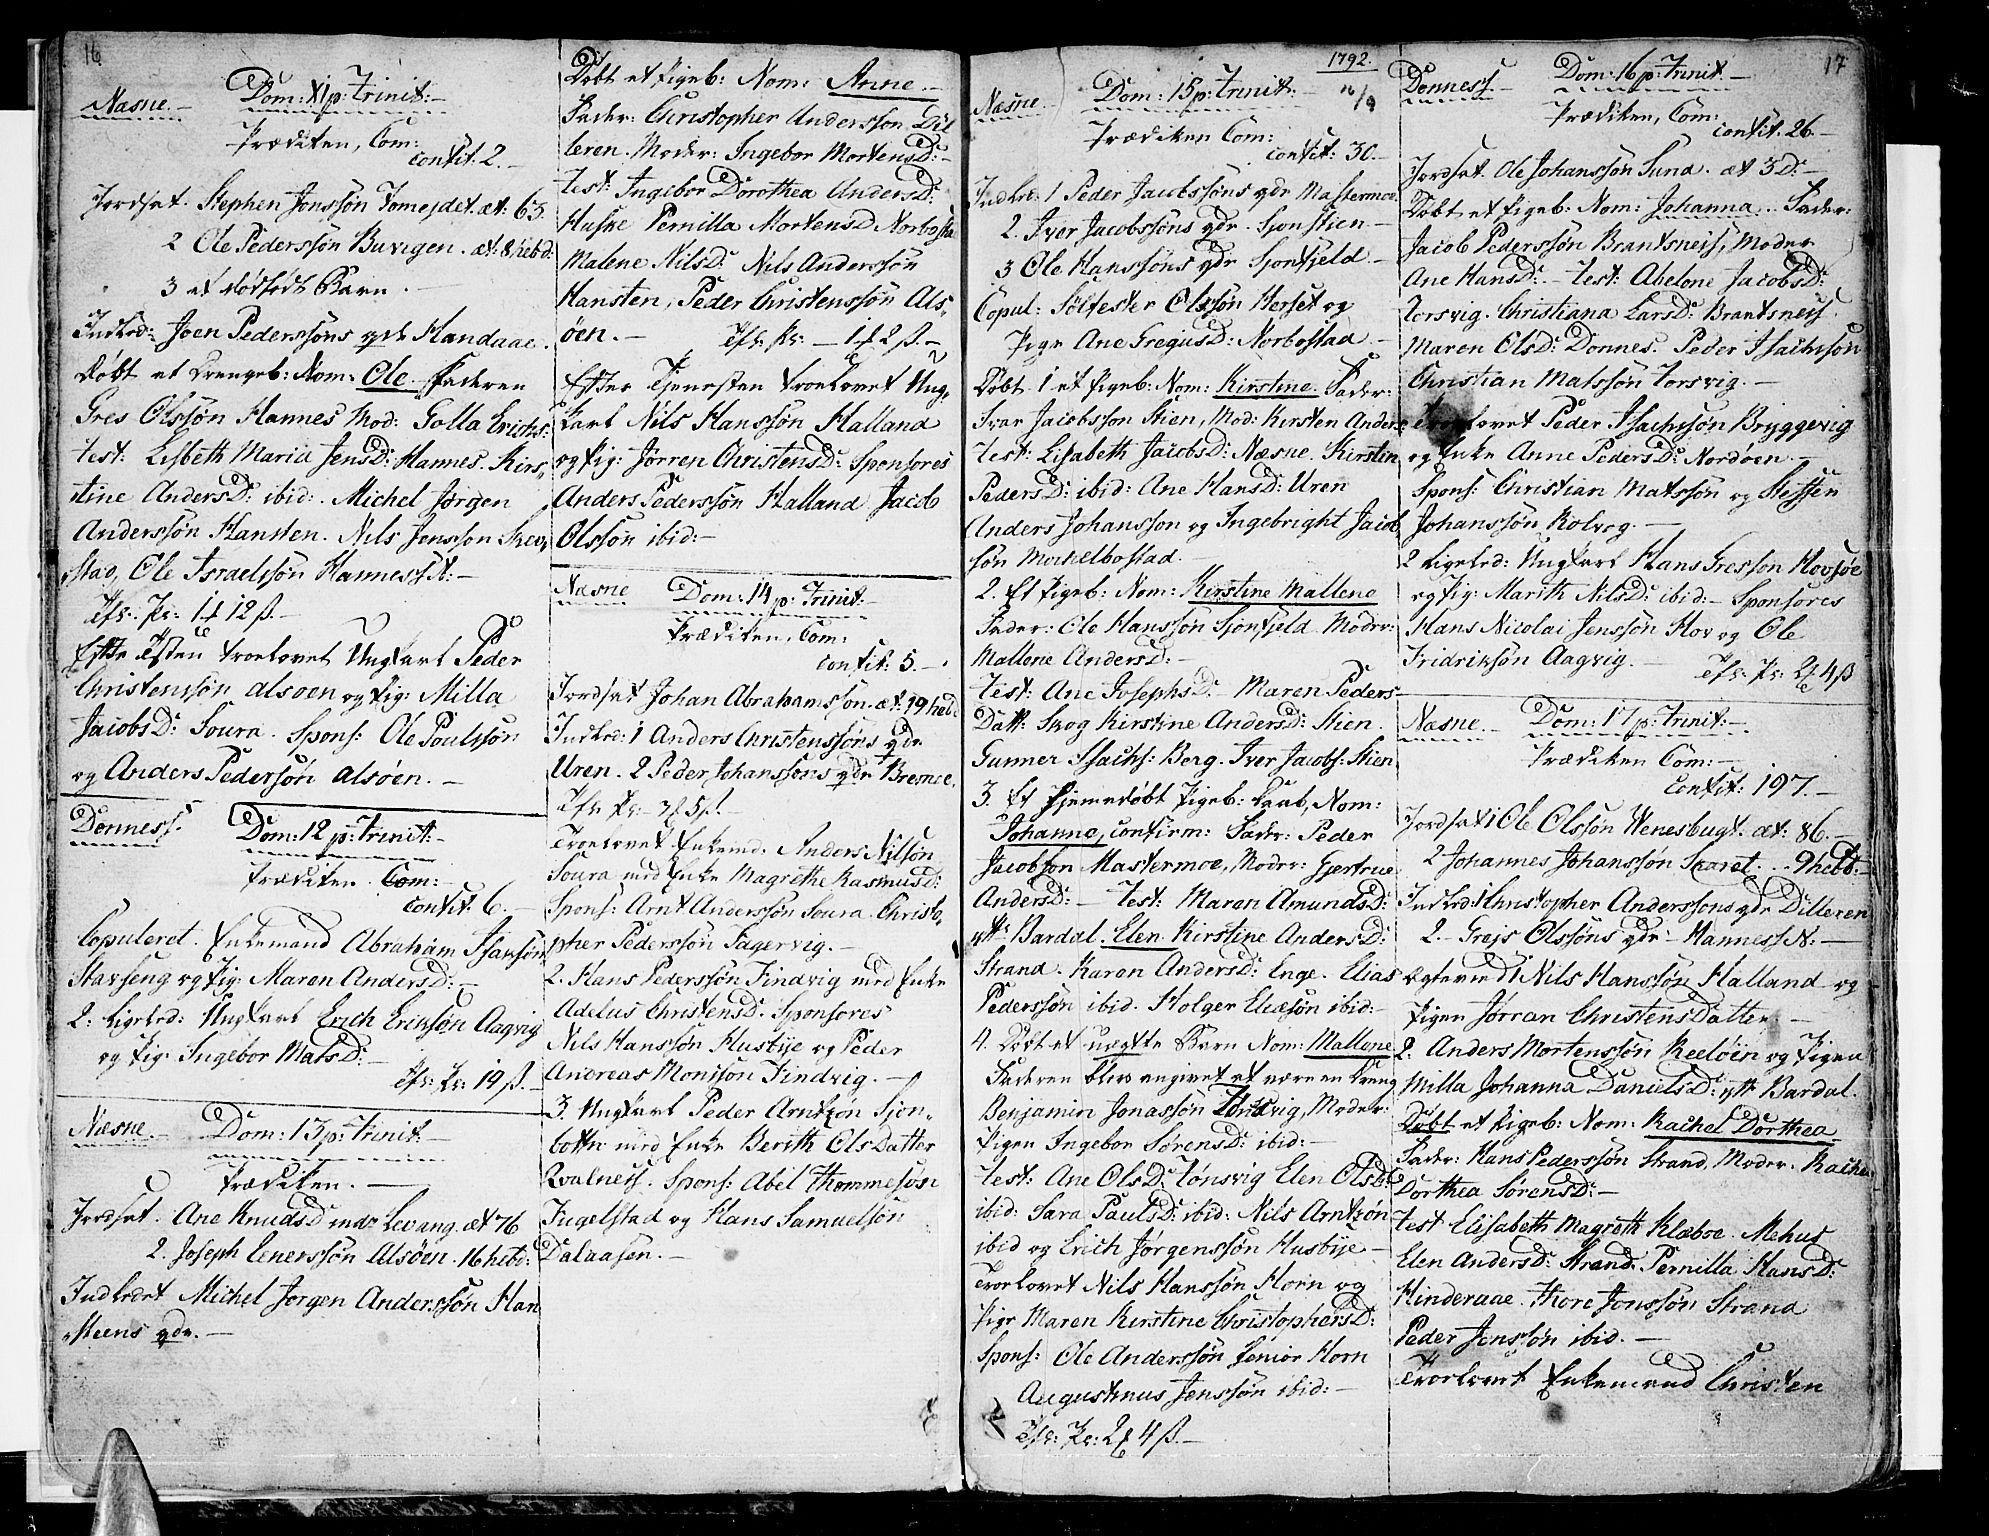 16
Næsne. Dom: XI p: Trinit:
Prædiken, Com:
confit. 2.
Jordsat. Stephen Jonssøn Tomejdet. æt. 63.
2 Ole Pederssøn Buvigen. æt. 8 hebd:
3 et dødfødt Barn.
Indled: Joen Pederssøns qde Handaae.
Døbt et Drengeb: Nom: Ole Faderen
Gres Olssøn Hannes Mod: Golla Erichs:
Test: Lisbeth Maria JensD: Hannes. Kirs-
tine AndersD: ibid: Michel Jørgen
Anderssøn Hansten. Nils Jonsson
stad, Ole Israelssøn Hannes
Tfl: Pr: 1 12 ß.
troelovet Ungkarl Peder
Christenssøn alsøen og Pig: Milla
JacobsD: Soura. Spons: Ole Poulssøn
og Anders Pedersøn alsøen.
Dønness. Dom: 12 p: Trinit:
Prædiken. Com:
confit: 6.
Copuleret. Enkemand Abraham Isaksøn
Stavseng og Pig: Maren AndersD:
2: Ligeled: Ungkarl Erich Eriksøn Aagvig
og Pig: Ingebor MatsD:
Tfl: Pr: 19 ß.
Næsne. Dom: 13 p: Trinit:
Prædiken.
Jordsat. Ane KnudsD Levang. æt 76
2. Joseph Enerssøn Alsøen. 16 hebd:
Indledet Michel Jørgen Anderssøn Han
steens qde.
Døbt et Pigeb: Nom: Anne
Fader: Christopher Anderssøn Dil
leren. Moder: Ingebor MortensD:
Test: Ingebor Dorothea AndersD:
Huske Pernilla MortensD Norbosta
Malene NilsD: Nils Anderssøn
Hansten, Peder Christenssøn Als-
øen. Tfl: Pr: 1 2 ß.
Efter Tjenesten troelovet Ung-
karl Nils Hanssøn Halland
og Pig: Jørren ChristensD: Sponsores
Anders Pederssøn Halland Jacob
Olssøn ibid:
Næsne Dom: 14 p: Trinit:
Prædiken, Com:
confit: 5.
Jordsat Johan Abrahamssøn. æt: 19 hebd.
Indled: 1 Anders Christenssøns qde
Uren. 2 Peder Johanssøns qde Bremne.
Tfl: Pr: 3 5 ß.
Troelovet Enkemd. Anders Nilssøn
Soura med Enke Magrethe RasmusD:
Spons: Arnt Anderssøn Soura. Christo-
pher Pederssøn Fagervig.
2. Hans Pederssøn Findvig med Enke
Adelus ChristensD. Sponsores
Nils Hanssøn Husbye og Peder
Andreas Monssøn Findvig.
3. Ungkarl Peder Arntzøn Sjon-
botn med Enke Berith OlsDatter
Qvalness. Spons: Abel Thommesøn
Fugelstad og Hans Samuelsøn
Dalaasen.
1792.
Næsne Dom: 15 p: Trinit: 16/9
Prædiken Com:
confit: 30.
Indled: 1 Peder Jacobssøns qde Mastermoe
2. Iver Jacobssøns qde Sjonstien
3 Ole Hanssøns qde Sjonfjeld
Copul: Sølfester Olssøn Herset og
Pige Ane GregusD: Norbostad
Døbt 1 et Pigeb: Nom: Kirstine Fader:
Ivar Jacobsson Stien, Mod: Kirsten Anders
Test: Lisabeth JacobsD: Næsne. Kirstin
PedersD: ibid: Ane HansD: Uren
Anders Johansson og Ingebright Jacob
søn Morkelbostad.
2. Et Pigeb: Nom: Kirstine Mallene
Fader: Ole Hanssøn Sjonfjeld Moder:
Mallene AndersD:
Test: Ane JosephsD: Maren Peders
Datt: Skog Kirstine AndersD: Stien.
Gunner Isachs: Berg. Iver Jacobs: Stien
3. Et hjemedøbt Pigeb: Nom:
Johanna, confirm: Fader: Peder
Jacobson Mastermoe, Moder: Gjertrue
AndersD: Test: Maren AmundsD:
Bardal. Elen Kirstine AndersD:
Strand. Karen AndersD: Enge. Elias
Pederssøn ibid. Holger Eliæsøn ibid:
4. Døbt et uægte Barn Nom: Mallene
Faderen blev angivet at være en Dreng
Benjamin Jonassøn Moder:
Pigen Ingebor SørensD: ibid:
Test: Ane OlsD. Tønsvig Elen OlsD:
ibid: Sara PaulsD: ibid: Nils Arntzøn
ibid og Erich Jørgenssøn Husbye
Troelovet Nils Hanssøn Horn og
Pige Maren Kirstine ChristophersD:
Spons: Ole Anderssøn senior Horn
Augustinus Jenssøn ibid:
Tfl: Pr: 2 4 ß.
17
Dønness. Dom: 16 p: Trinit.
Prædiken, Com:
confit. 26.
Jordsat. Ole Johanssøn Sund. æt 3 D:
Døbt et Pigeb: Nom: Johanna. Fader:
Jacob Pederssøn Brantsneis, Moder
Ane HansD: Test: Abelone JacobsD:
Torsvig. Christiana LarsD: Brantsneis.
Maren OlsD: Dønnes. Peder Isachssøn
Christian Matssøn Torsvig.
Troelovet Peder Isachssøn Bryggevig
og Enke Anne PedersD: Nordøen.
Spons: Christian Matssøn og Steffen
Johanssøn Kolvog.
2 Ligeled: Ungkarl Hans Gresson Hovsøe
og Pig: Marith NilsD: ibid: Sponsores
Hans Nicolai Jenssøn Hov og Ole
Fridriksøn Aagvig. Tfl: Pr: 2 4 ß
Næsne Dom: 17 p: Trinit:
Prædiken Com:
confit: 197.
Jordsat 1 Ole Olssøn Wenesbugt. æt: 86.
2 Johannes Johanssøn Skaret. 9 hebd:
Indled: 1 Christopher Anderssøns qde Dilleren
2. Grejs Olssøns qde Hannes
Egteviede 1 Nils Hanssøn Halland og
Pigen Jørran Christensdatter
2. Anders Mortenssøn Keeløen og Pigen
Milla Johanna DanielsD: Bardal.
Døbt et Pigeb: Nom: Rachel Dorthea
Fader: Hans Pederssøn Strand, Moder. Rachel
Dorthea SørensD:
Test Elisabeth Magreth Klæboe. Mehus
Elen AndersD: Strand. Pernilla HansD:
Hinderaae. Thore Jonssøn Strand
Peder Jonssøn ibid.
Troelovet Enkemand Christen